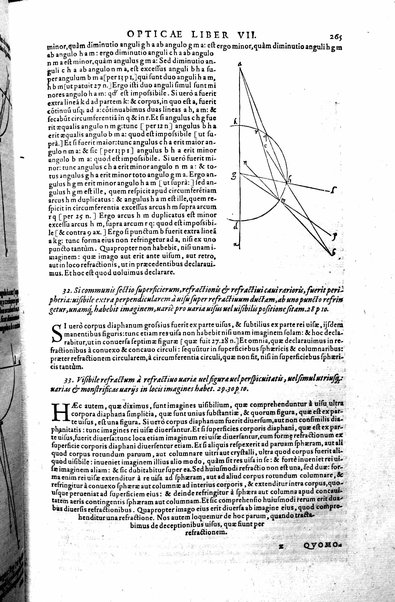 OPTICAE LIBER VII. 265
minor, quàm diminutio anguli g h a ab angulo g m a: est ergo minor, quàm diminutio anguli h g m
ab angulo h a m: ergo diminutio anguli h g m ab angulo h a
n m a est minor, quàm angulus g m a: Sed diminutio an-
guli c h a ab angulo n m a, est excessus anguli b h a su-
per angulum b m a
minores angulo h a m: qđ est impossibile. Si uerò a fuerit
extra lineã k d ad partem k: & corpus, in quo est a, fuerit
cõtinuũ usq; ad a: cõtinuabimus duas lineas a h, a m: &
secabũt circumferentiã in q & in r. Et si angulus c h g fue
rit æqualis angulo n m g: tunc
angulo n m a: & sic
ptà.] Et si fuerit maior: tunc angulus c h a erit maior an-
gulo n m a: & sic [per 15 p 1] angulus b h a erit minor
angulo b m a: quod est impossibile. Si uerò fuerit mi-
nor: tunc angulus c h a erit minor angulo n m a: & to-
tus angulus g h a erit minor toto angulo g m a. Ergo an
gulus h g m erit minor angulo h a m [ut suprà:] sed an-
gulus h g m est ille, quem respicit apud circumferentiam
arcus h m duplicatus: & angulus h a m est ille, quem re-
spicit in circumferentia excessus arcus h m supra arcum
r q
minor excessu arcus h m, supra arcum r q: quod est impossibile
[& contra 9 ax.] Ergo si punctum b fuerit extra lineam
a k g: tunc forma eius non refringetur ad a, nisi ex uno
puncto tantùm. Quapropter non habebit, nisi unam i-
maginem: quæ imago aut erit ante uisum, aut retro,
aut in loco refractionis, ut in præcedentibus declaraui-
mus. Et hoc est quod uoluimus declarare.
32. Si communis sectio superficierum, refractionis & refractiui caui rarioris, fuerit peri-
pheria: uisibile extra perpendicularem à uisu super refractiuum ductam, ab uno puncto refrin
getur, unamq; habebit imaginem, uariè pro uaria uisus uel uisibilis positione sitam. 28 p 10.
SI uerò corpus diaphanum grossius fuerit ex parte uisus, & subtilius ex parte rei uisæ, & ijsdem
manentibus figuris: tunc etiam res uisa non habebit nisi unam imaginem solam: & hoc decla-
rabitur, ut in conuersa septimæ figuræ [quæ fuit 27.28 n.] Et omnia, quæ declarauimus in refra-
ctionibus à conuexo & concauo circuli: sequitur in superficiebus sphæricis & columnaribus:
præter refractionem circularem, à circumferentia circuli, quæ non fit, nisi in superficiebus sphæri-
cis tantùm.
33. Visibile refractum à refractiuo uaria uel figura uel perspicuitate, uel simul utriusq;
uarias & monstrificas uarijs in locis imagines habet. 29.30 p 10.
HAEc autem, quæ diximus, sunt imagines uisibilium, quæ comprehenduntur à uisu ultra
corpora diaphana simplicia, quæ sunt unius substantiæ, & quorum figura, quæ est ex par
te uisus, est una figura. Si uerò corpus diaphanum fuerit diuersum, aut non consimilis dia-
phanitatis: tunc imagines rei uisæ diuersantur. Et si superficies corporis diaphani, quæ est ex par-
te uisus, fuerit diuersæ formæ: tunc loca etiam imaginum rei uisæ diuersantur, cum formæ refractionum ex
superficie corporis diaphani diuersentur. Et cum aliquis respexerit ad paruam sphæram, aut ali
quod corpus rotundum paruum, aut columnare uitri aut crystalli, ultra quod corpus fuerit ali-
quod uisibile: inueniet imaginem illius alio modo, quàm sit res uisa in se: & fortè inueniet rei ui-
sæ imaginem aliam: & sic dubitabitur super ea. Sed huiusmodi refractio non est una, sed duæ: for-
ma enim rei uisæ extenditur à re uisa ad corpus sphæricum, aut ad aliud corpus rotundum columnare, &
refringitur à conuexo sphæræ aut columnæ ad interius corporis, & extenditur intra corpus, quo-
usque perueniat ad superficiem eius: & deinde refringitur à sphæra aut columna ad concaui-
tatem aeris contingentis sphæram aut columnam. Et sic comprehensio huiusmodi rerum erit dua-
bus diuersis refractionibus. Quapropter imago eius erit diuersa ab imagine eius, quod compre-
henditur una refractione. Nos autem loquemur de hoc parum, quando tracta-
bimus de deceptionibus uisus, quæ sunt per
refractionem.
z QVOMO-